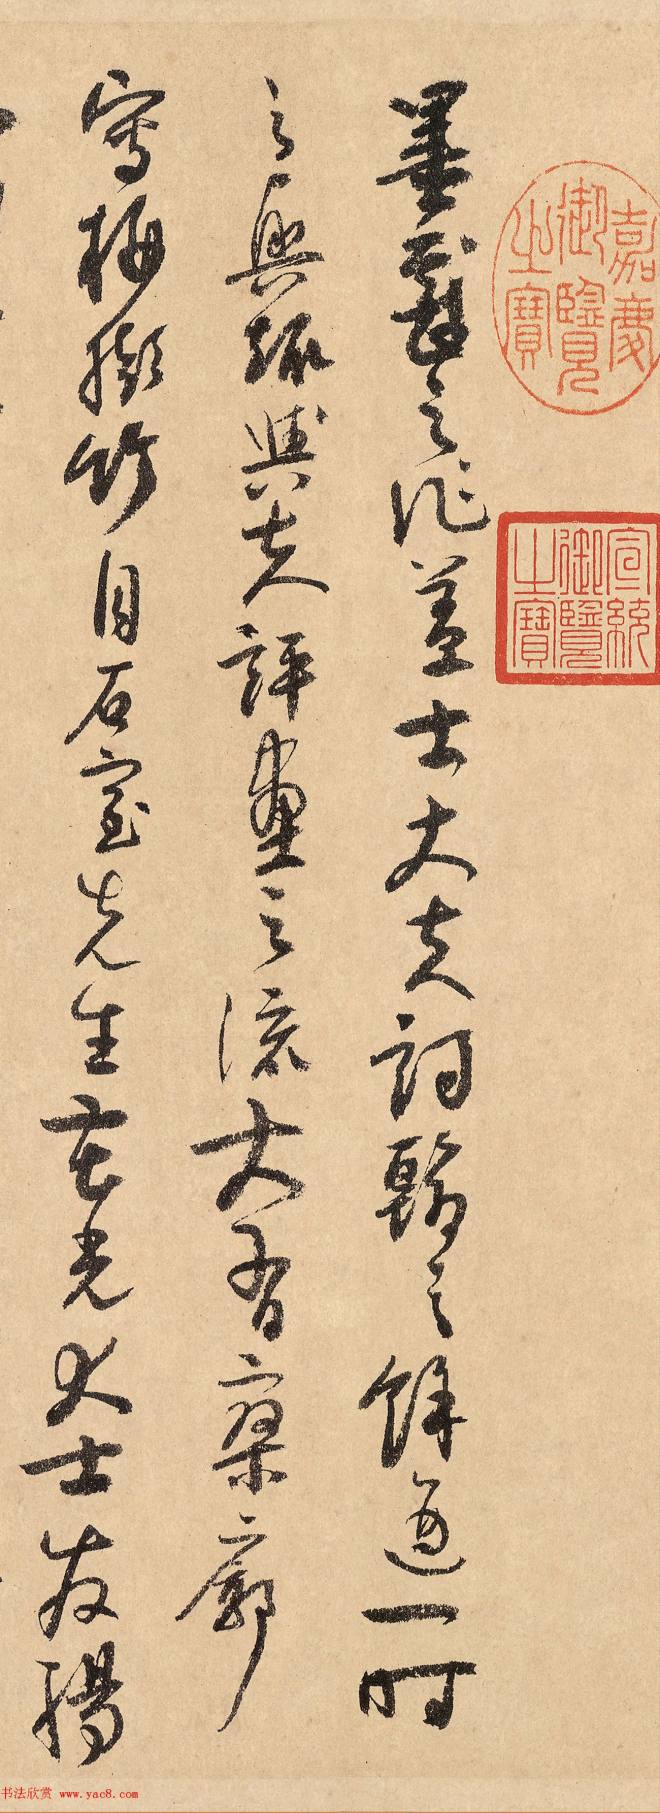 墨戲之作蓋士大夫詞翰之餘適一時
之興趣與夫評畫之流大有寥廓
寫梅撇竹
自石室先生花光大士友楊
嘉慶御覽之寶
宣統御覽之寶
书法欣赏 www.yac8.com